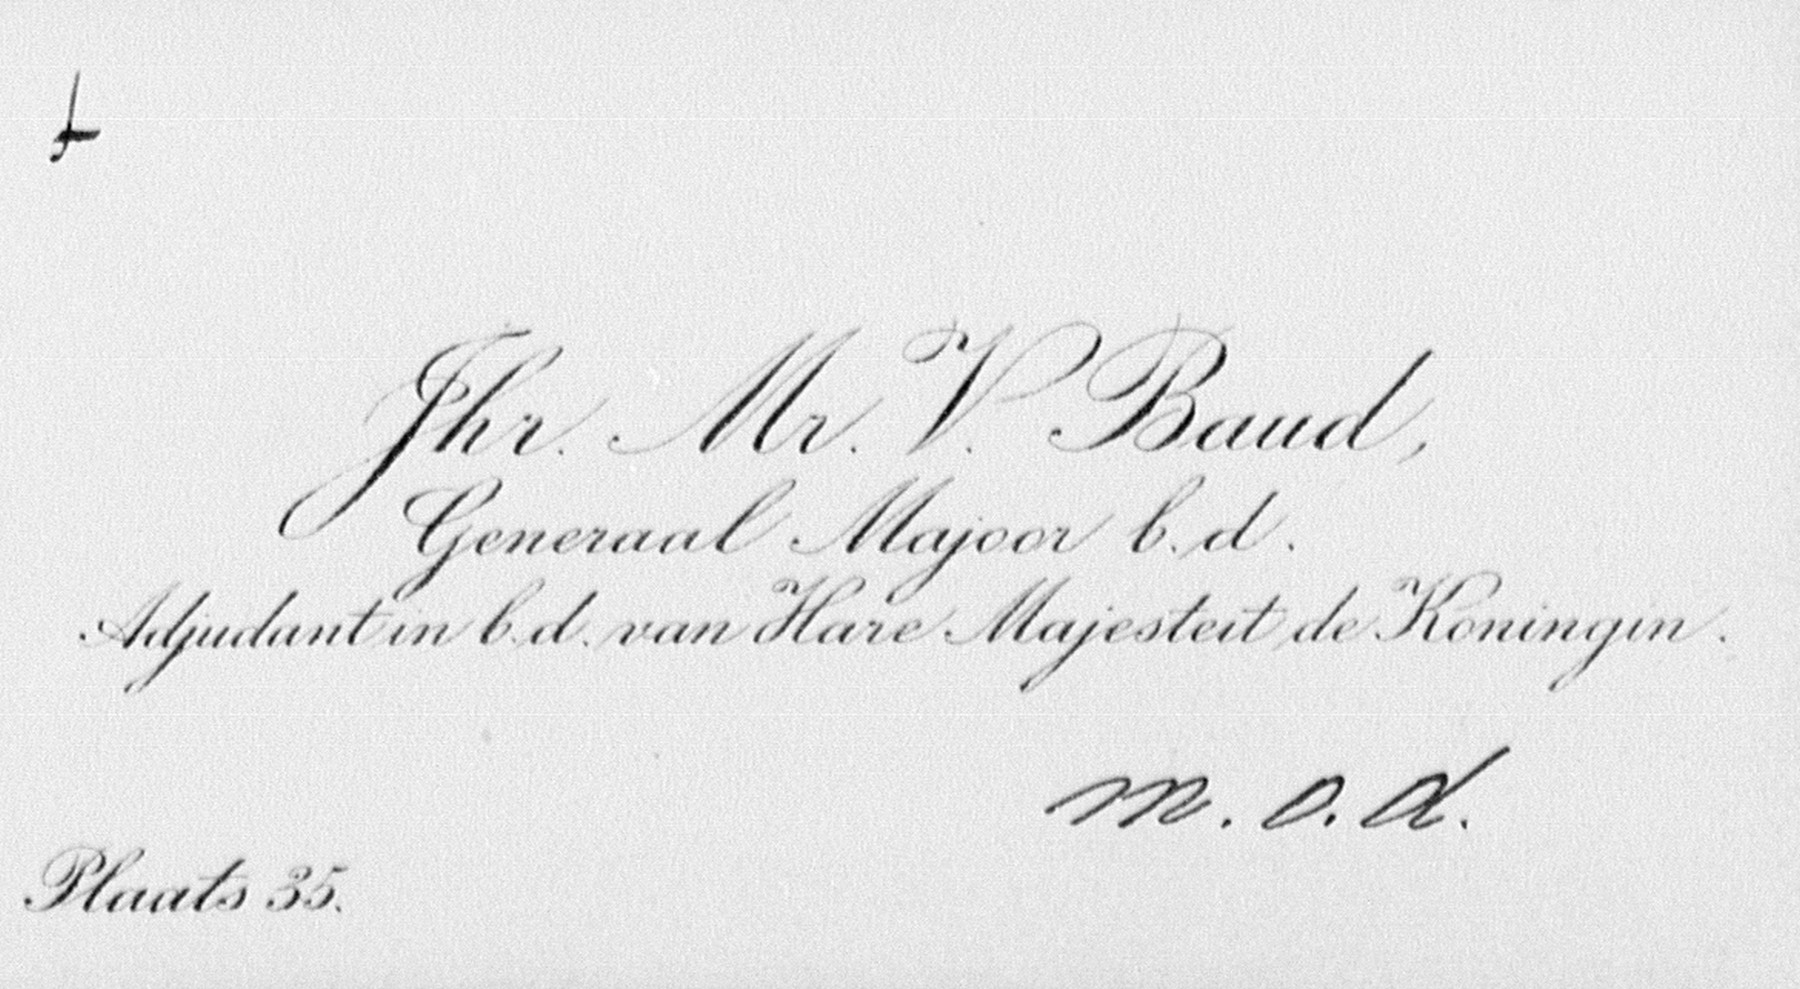 Jhr. Mr. V. Baud,
Generaal Majoor b.d.
Adjudant in b.d. van Hare Majesteit de Koningin.
m.o.d.
Plaats 35.